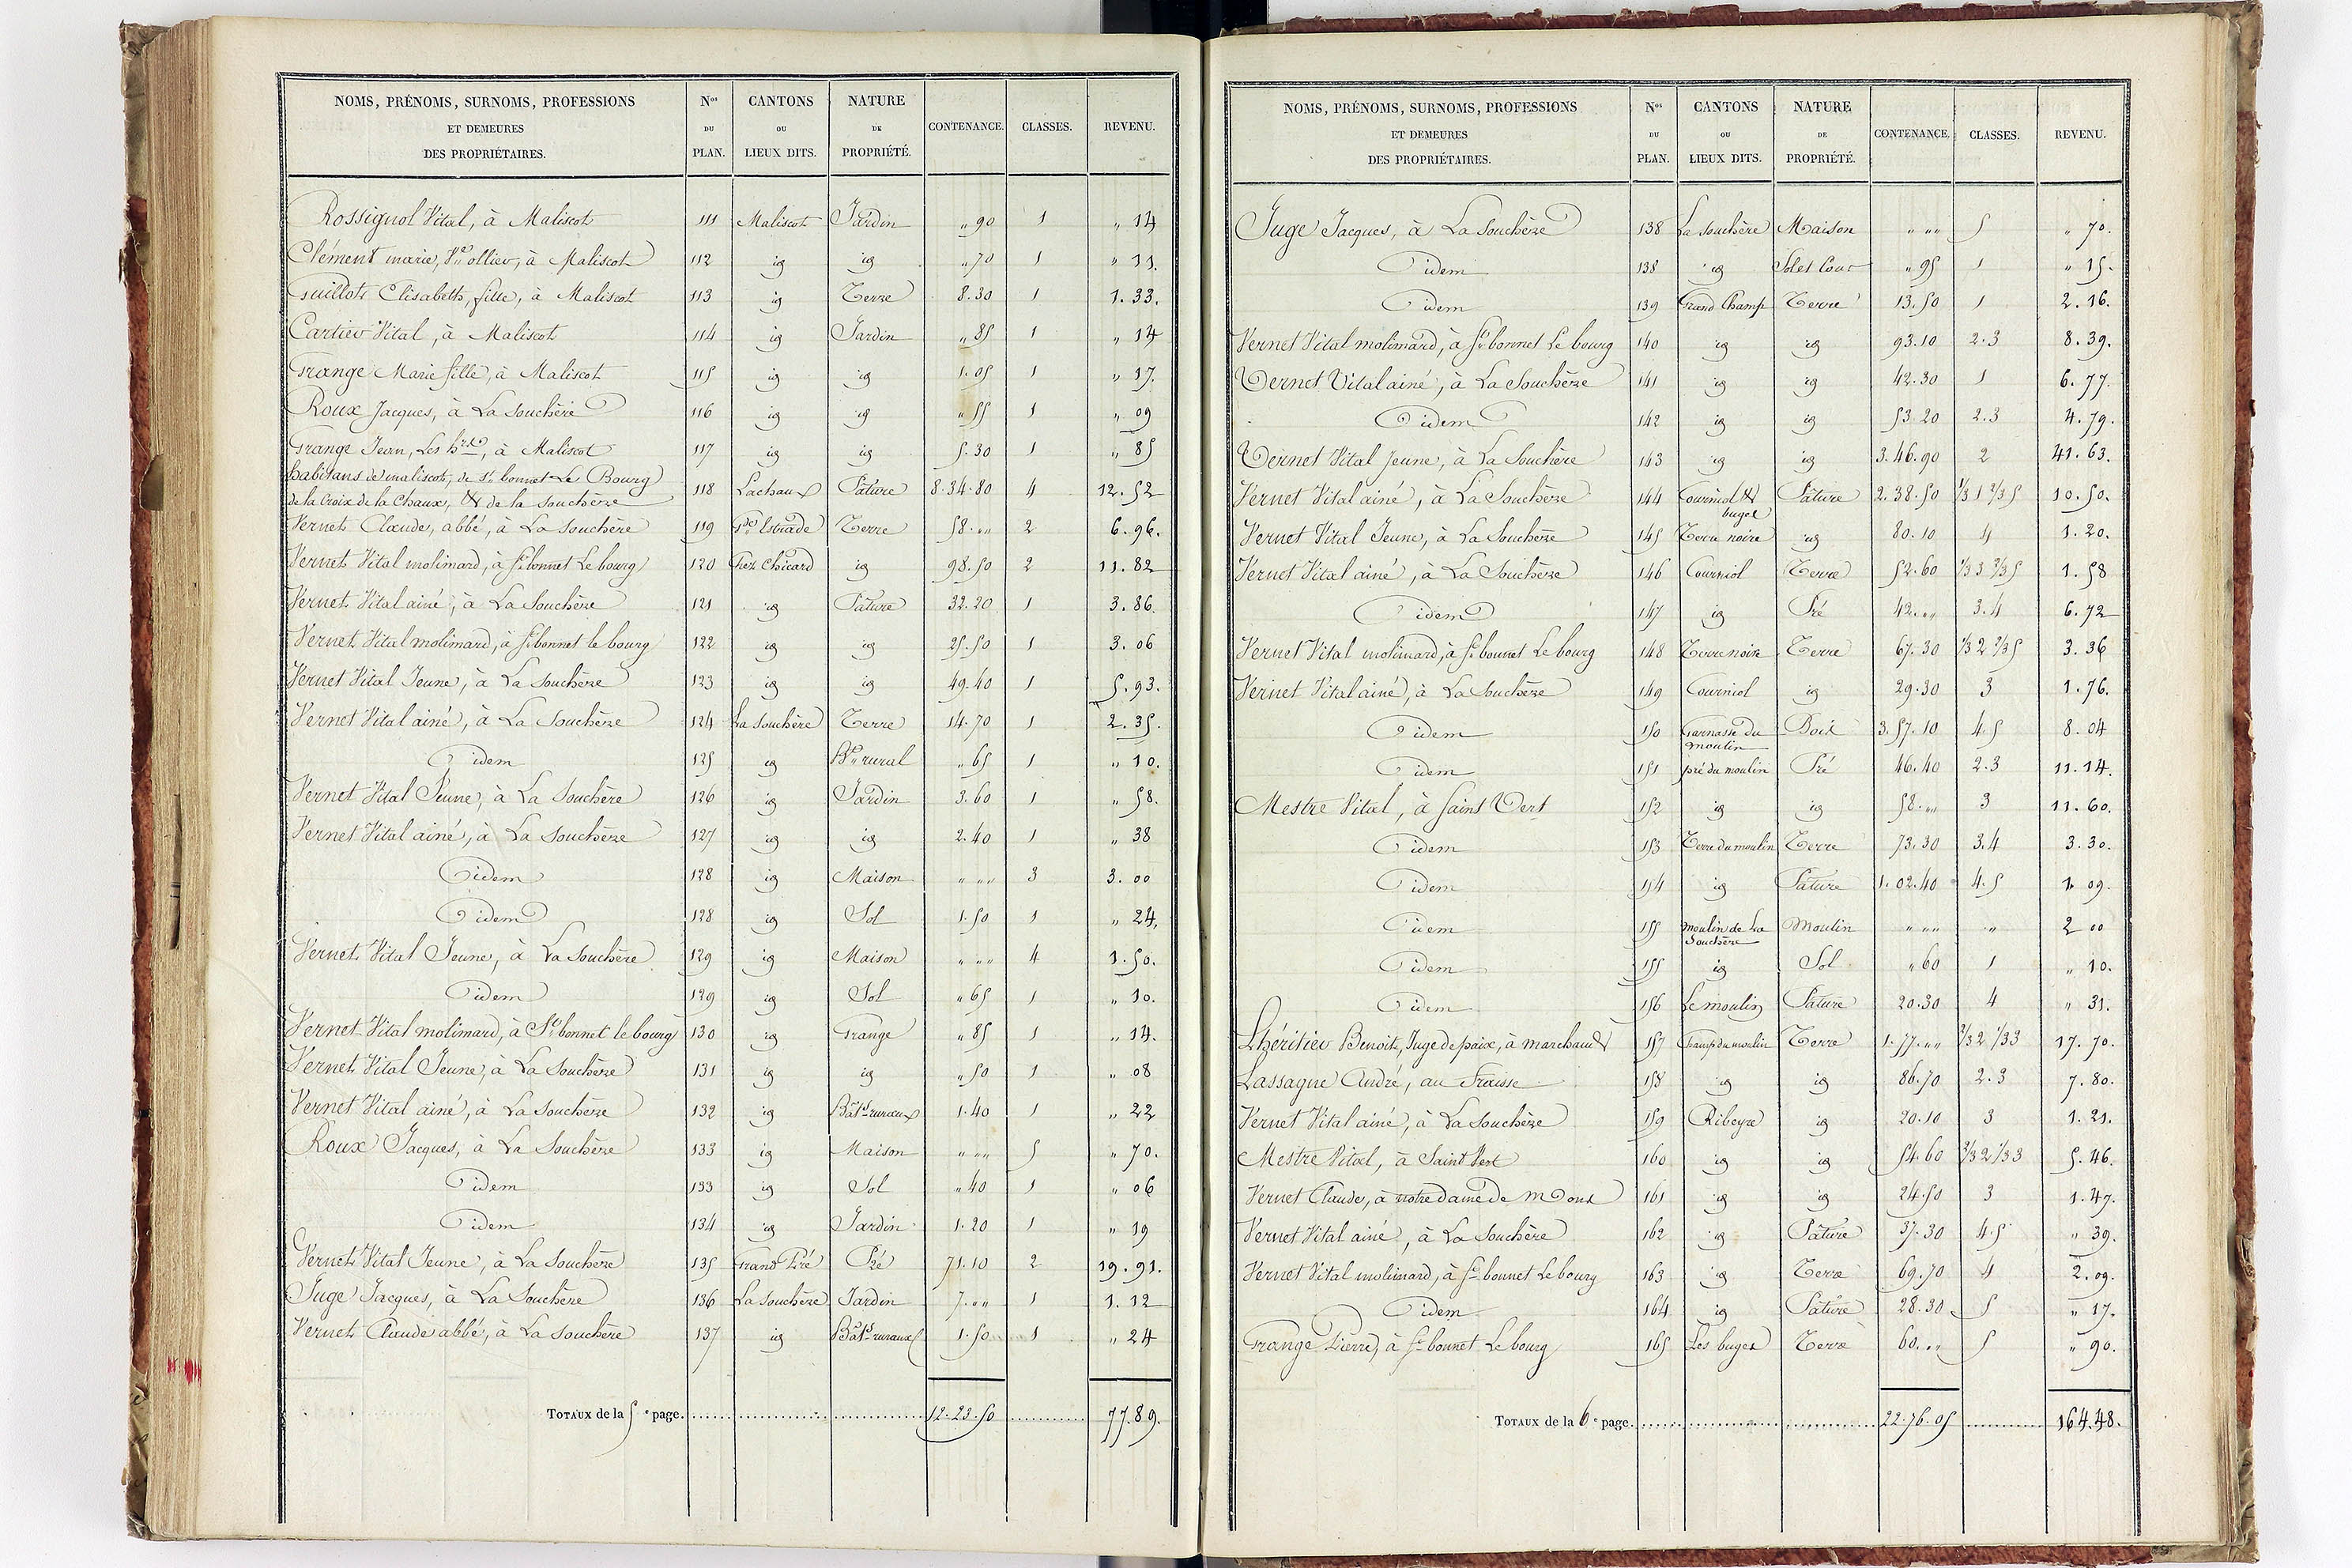 NOMS, PRÉNOMS, SURNOMS, PROFESSIONS ET DEMEURES DES PROPRIÉTAIRES. Nos DU PLAN. CANTONS OU LIEUX DITS. NATURE DE PROPRIÉTÉ. CONTENANCE. CLASSES. REVENU.
Rossignol Vital, à Maliscot 111 Maliscot Jardin " 90 1 " 14
Clément marie, Ve ollier, à Maliscot 112 id id " 70 1 " 11.
Guillot Elisabeth, fille, à Maliscot 113 id Terre 8.30 1 1.33.
Cartier Vital, à Maliscot 114 id Jardin " 85 1 " 14
Grange Marie fille, à Maliscot 115 id id 1.05 1 " 17.
Roux Jacques, à La Souchère 116 id id " 55 1 " 09
Grange Jean, Les hrs, à Maliscot 117 id id 5.30 1 " 85
habitans de maliscot, de st bonnet Le Bourg
de la Croix de la Chaux, & de la souchère 118 Lachaux Pature 8.34.80 4 12.52
Vernet Claude, abbé, à La Souchère 119 Gde Estrade Terre 58." 2 6.96.
Vernet Vital molimard, à St bonnet Le bourg 120 Chez Chicard id 98.50 2 11.82
Vernet Vital ainé, à La Souchère 121 id Pature 32.20 1 3.86.
Vernet Vital molimard, à St bonnet le bourg 122 id id 25.50 1 3.06
Vernet Vital Jeune, à La Souchère 123 id id 49.40 1 5.93.
Vernet Vital ainé, à La Souchère 124 La Souchère Terre 14.70 1 2.35.
idem 125 id Bt rural " 65 1 " 10.
Vernet Vital Jeune, à La Souchère 126 id Jardin 3.60 1 " 58.
Vernet Vital ainé, à La Souchère 127 id id 2.40 1 " 38
idem 128 id Maison " " " 3 3.00
idem 128 id Sol 1.50 1 " 24.
Vernet Vital Jeune, à La Souchère 129 id Maison " " " 4 1.50.
idem 129 id Sol " 65 1 " 10.
Vernet Vital molimard, à St bonnet le bourg 130 id Grange " 85 1 " 14.
Vernet Vital Jeune, à La Souchère 131 id id " 50 1 " 08
Vernet Vital ainé, à La Souchère 132 id Bâts ruraux 1.40 1 " 22
Roux Jacques, à La Souchère 133 id Maison " " " 5 " 70.
idem 133 id Sol " 40 1 " 06
idem 134 id Jardin 1.20 1 " 19
Vernet Vital Jeune, à La Souchère 135 Grand Pré Pré 71.10 2 19.91.
Juge Jacques, à La Souchère 136 La Souchère Jardin 7." 1 1.12
Vernet Claude abbé, à La Souchère 137 id Bâts ruraux 1.50 1 " 24
TOTAUX de la 5e page. 12.23.50 77.89.
NOMS, PRÉNOMS, SURNOMS, PROFESSIONS ET DEMEURES DES PROPRIÉTAIRES. Nos DU PLAN. CANTONS OU LIEUX DITS. NATURE DE PROPRIÉTÉ. CONTENANCE. CLASSES. REVENU.
Juge Jacques, à La Souchère 138 La Souchère Maison " " " 5 " 70.
idem 138 id Sol et Cour " 95 1 " 15.
idem 139 Grand Champ Terre 13.50 1 2.16.
Vernet Vital molimard, à St bonnet Le bourg 140 id id 93.10 2.3 8.39.
Vernet Vital ainé, à La Souchère 141 id id 42.30 1 6.77.
idem 142 id id 53.20 2.3 4.79.
Vernet Vital Jeune, à La Souchère 143 id id 3.46.90 2 41.63.
Vernet Vital ainé, à La Souchère 144 Courniol & buget Pature 2.38.50 1/3 1 2/3 5 10.50.
Vernet Vital Jeune, à La Souchère 145 Terre noire id 80.10 4 1.20.
Vernet Vital ainé, à La Souchère 146 Courniol Terre 52.60 1/3 3 2/3 5 1.58
idem 147 id Pré 42." 3.4 6.72
Vernet Vital molimard, à St bonnet Le bourg 148 Terre noire Terre 67.30 1/3 2 2/3 5 3.36
Vernet Vital ainé, à La Souchère 149 Courniol id 29.30 3 1.76.
idem 150 Garnasse du moulin Bois 3.57.10 4.5 8.04
idem 151 pré du moulin Pré 46.40 2.3 11.14.
Mestre Vital, à Saint Vert 152 id id 58." 3 11.60.
idem 153 Terre du moulin Terre 73.30 3.4 3.30.
idem 154 id Pature 1.02.40 4.5 1.09.
idem 155 moulin de La Souchère Moulin " " " " 2 00
idem 155 id Sol " 60 1 " 10.
idem 156 Le moulin Pature 20.30 4 " 31.
Lhéritier Benoit, Juge de paix, à marchaud 157 Champ du moulin Terre 1.77." 2/3 2 1/3 3 17.70.
Lassagne André, au Fraisse 158 id id 86.70 2.3 7.80.
Vernet Vital ainé, à La Souchère 159 Ribeyre id 20.10 3 1.21.
Mestre Vital, à Saint Vert 160 id id 54.60 2/3 2 1/3 3 5.46.
Vernet Claude, à notre dame de mons 161 id id 24.50 3 1.47.
Vernet Vital ainé, à La Souchère 162 id Pature 37.30 4.5 " 39.
Vernet Vital molimard, à St bonnet Le bourg 163 id Terre 69.70 4 2.09.
idem 164 id Pature 28.30 5 " 17.
Grange Pierre, à St bonnet Le bourg 165 Les buges Terre 60." 5 " 90.
TOTAUX de la 6e page. 22.76.05 164.48.